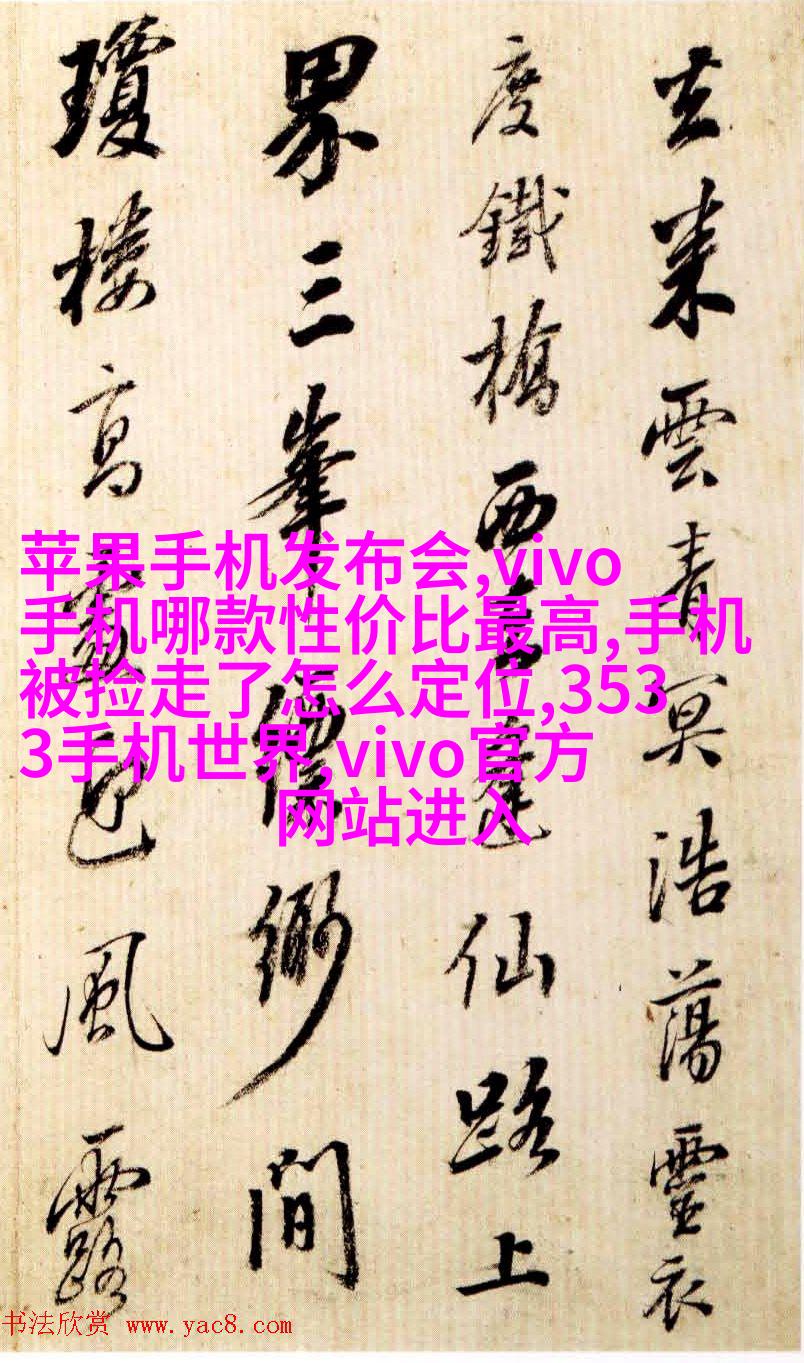 雲青冥浩蕩靈衣
度鐵橋西達仙路上
界三峯縹緲間
瓊樓高處風露
苹果手机发布会,vivo
手机哪款性价比最高,手机
被捡走了怎么定位,353
3手机世界,vivo官方
网站进入
书法欣赏 www.yac8.com